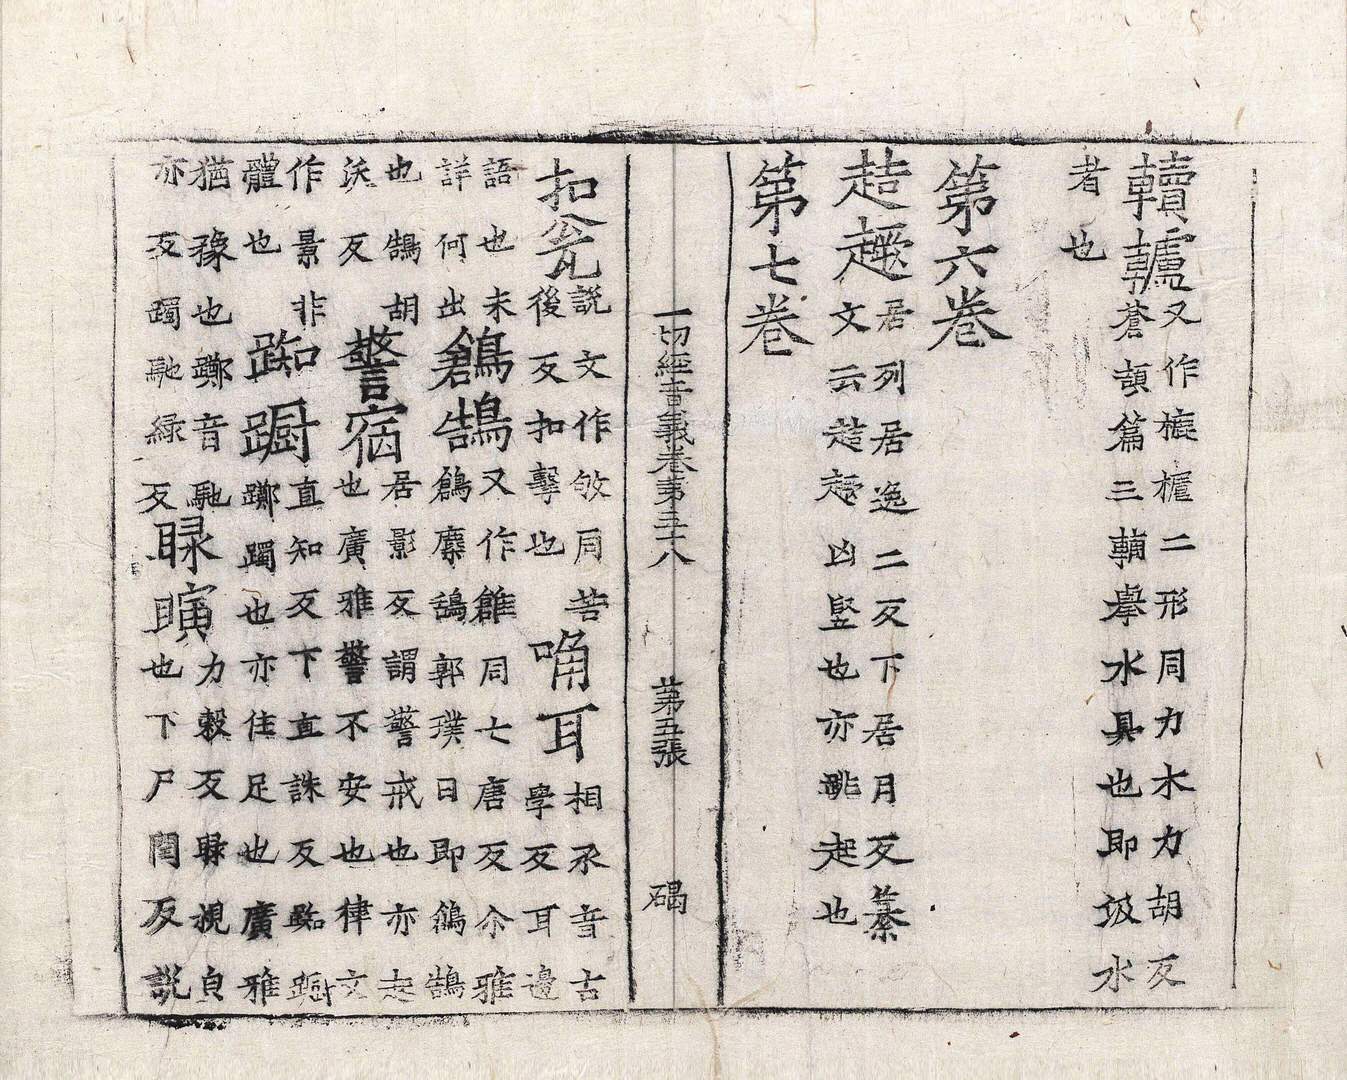 轤又作樚櫨二形同力木力胡反
蒼頡篇三輔舉水具也即汲水
者也
第六卷
趌居列居逸二反下居月反纂
文云趌凶豎也亦跳起也
第七卷
一切經音義卷第五十八 第五張 碣
扣瓮説文作敂同苦
後反扣擊也
唃耳相承音古
學反耳邊
語也未
詳何出
鶬鵠又作鶬同七唐反尒雅
鶬麋鴰郭璞曰即鶬鵠
也鵠胡
沃反
警宿居影反謂警戒也亦起
也廣雅警不安也律文
作景非
體也
踟蹰直知反下直誅反踟蹰
躑躅也亦住足也廣雅
猶豫也躑音馳
亦反躅馳緑反
睩瞚力穀反睩視皃
也下尸閏反説